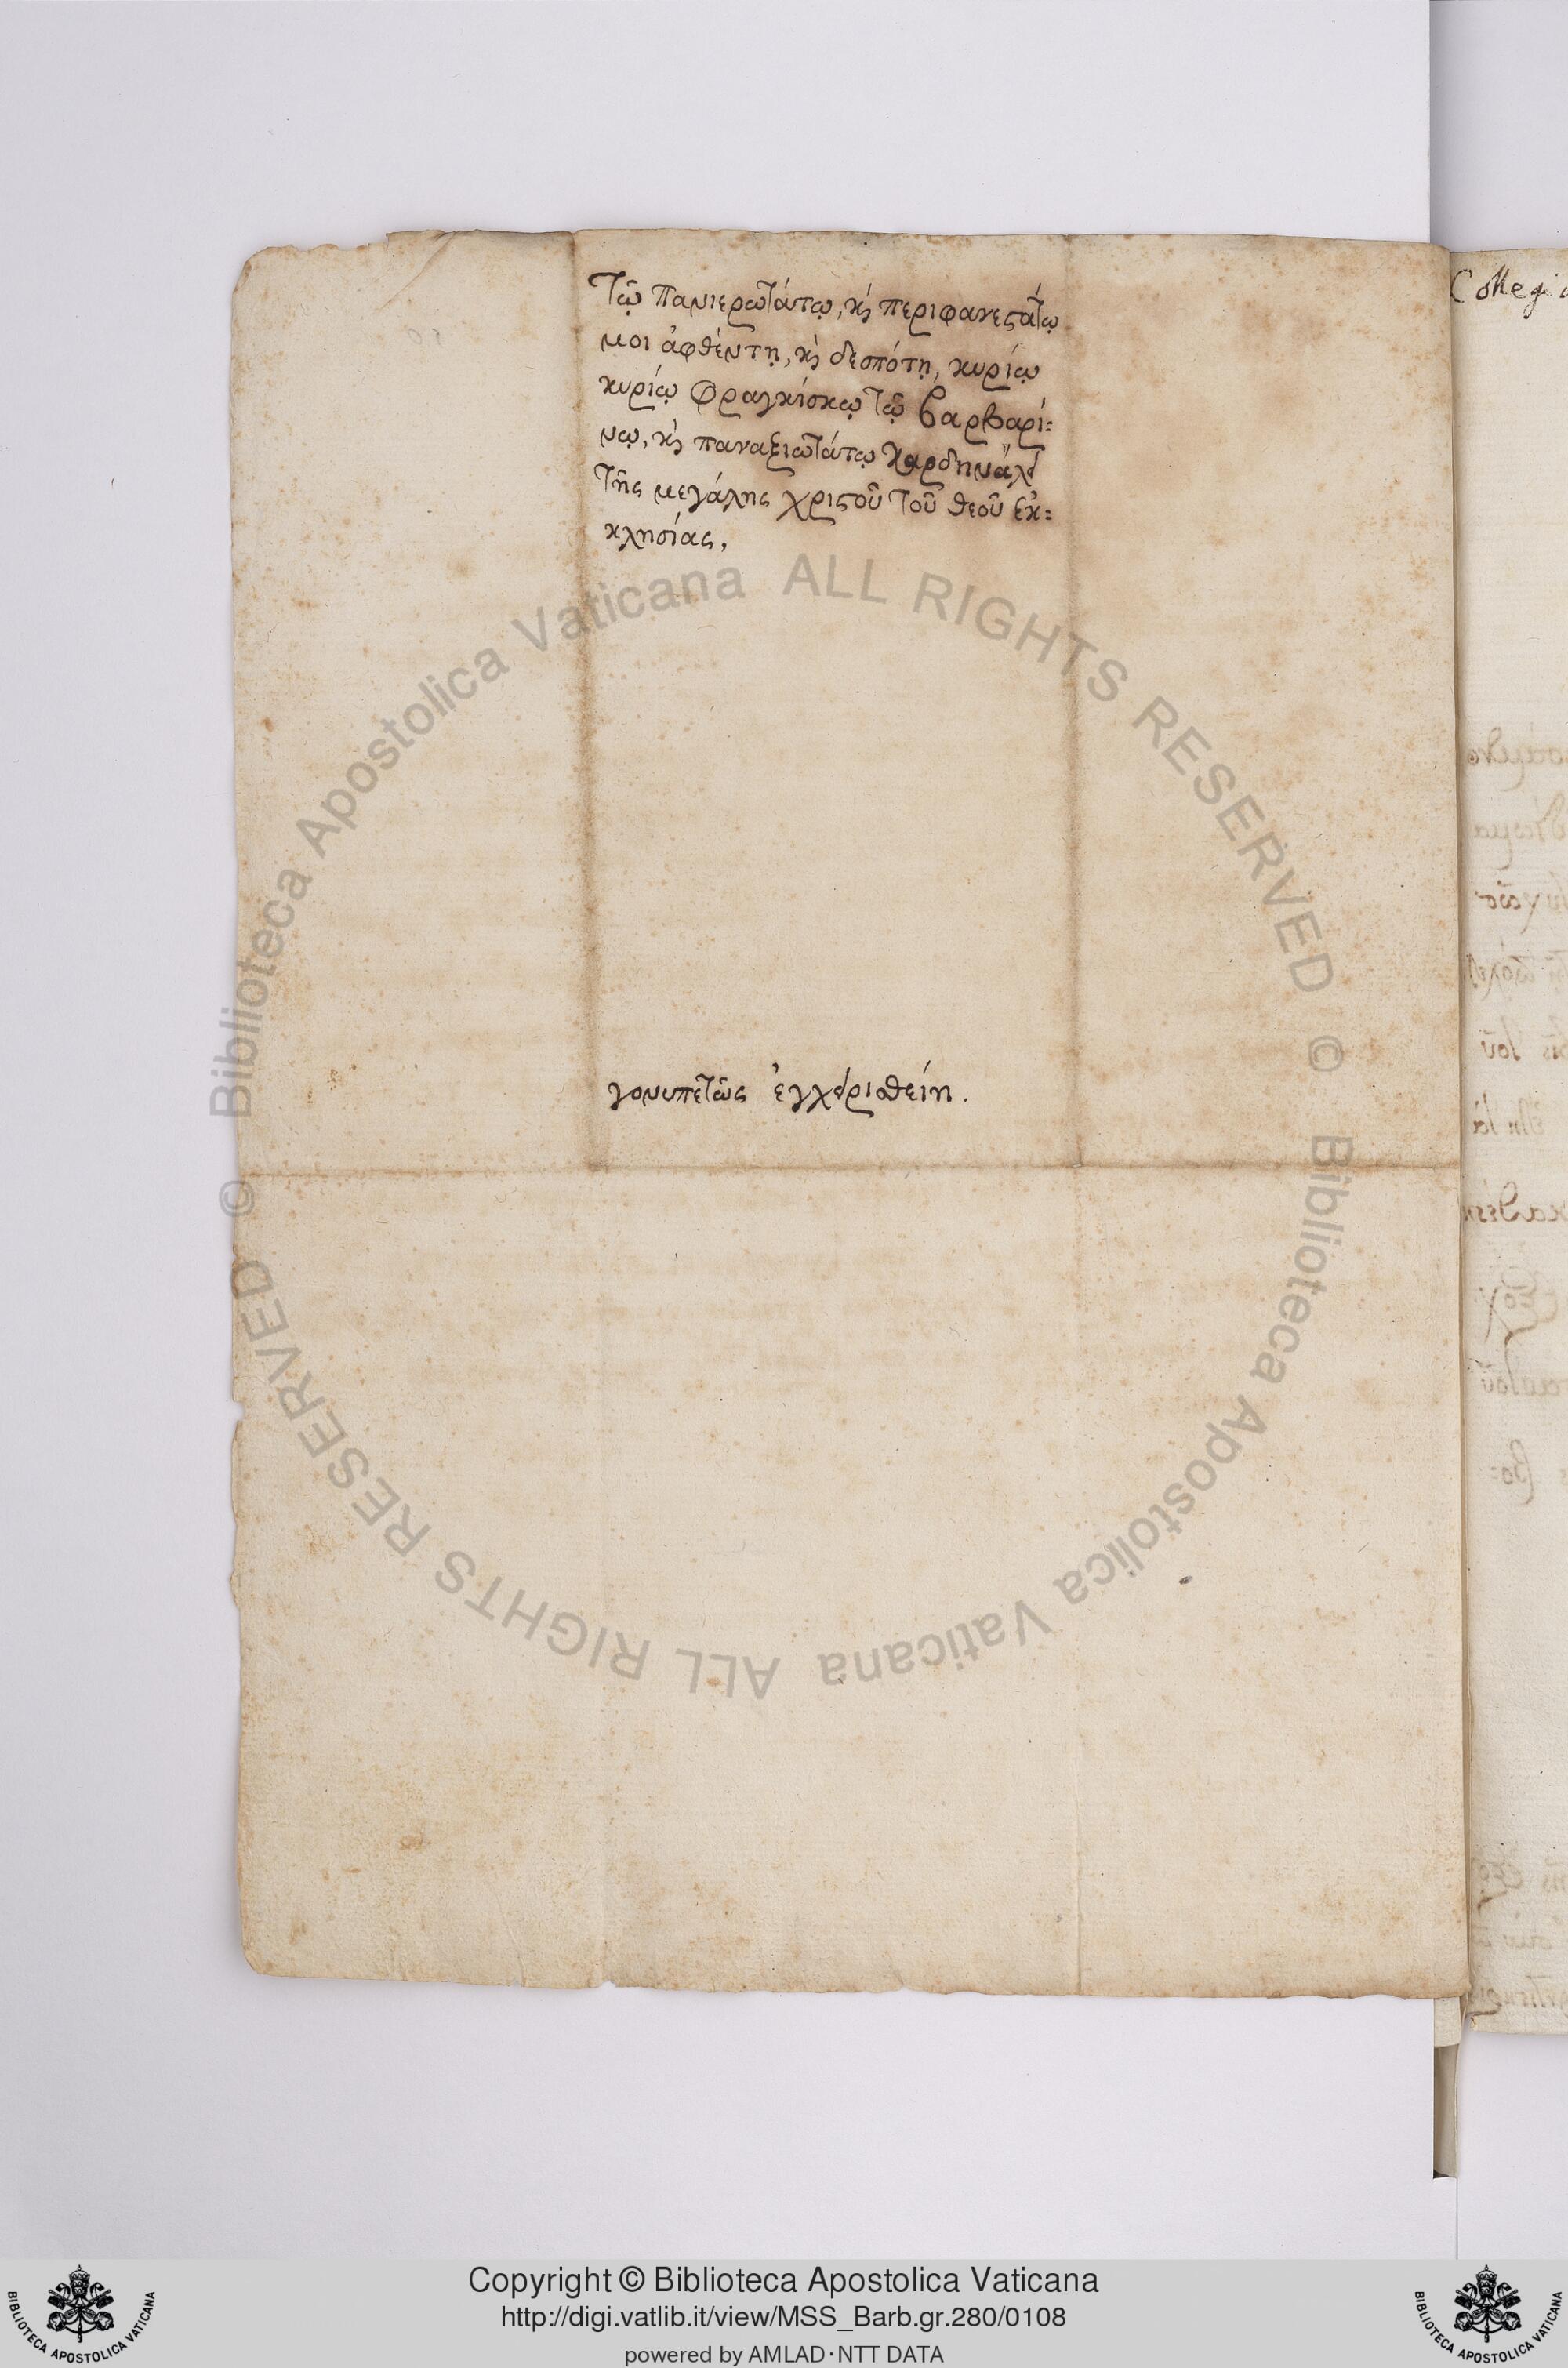 Τῷ Πανιερωτάτῳ, κὶ περιφανεςάτῳ
μοι ἀφθέντῃ, κὶ δεσπότῃ, κυρίῳ
κυρίῳ Φραγκίσκῳ Τῷ βαρβαρί=
νῳ, κὶ παναξιωτάτῳ καρδηνάλει
Τῆς μεγάλης χριςοῦ Τοῦ θεοῦ ἐκ=
κλησίας,
γονυπετῶς ἐγχειρισθείη.
Copyright © Biblioteca Apostolica Vaticana
http://digi.vatlib.it/view/MSS_Barb.gr.280/0108
powered by AMLAD·NTT DATA
BIBLIOTECA APOSTOLICA VATICANA
BIBLIOTECA APOSTOLICA VATICANA
© Biblioteca Apostolica Vaticana ALL RIGHTS RESERVED
© Biblioteca Apostolica Vaticana ALL RIGHTS RESERVED